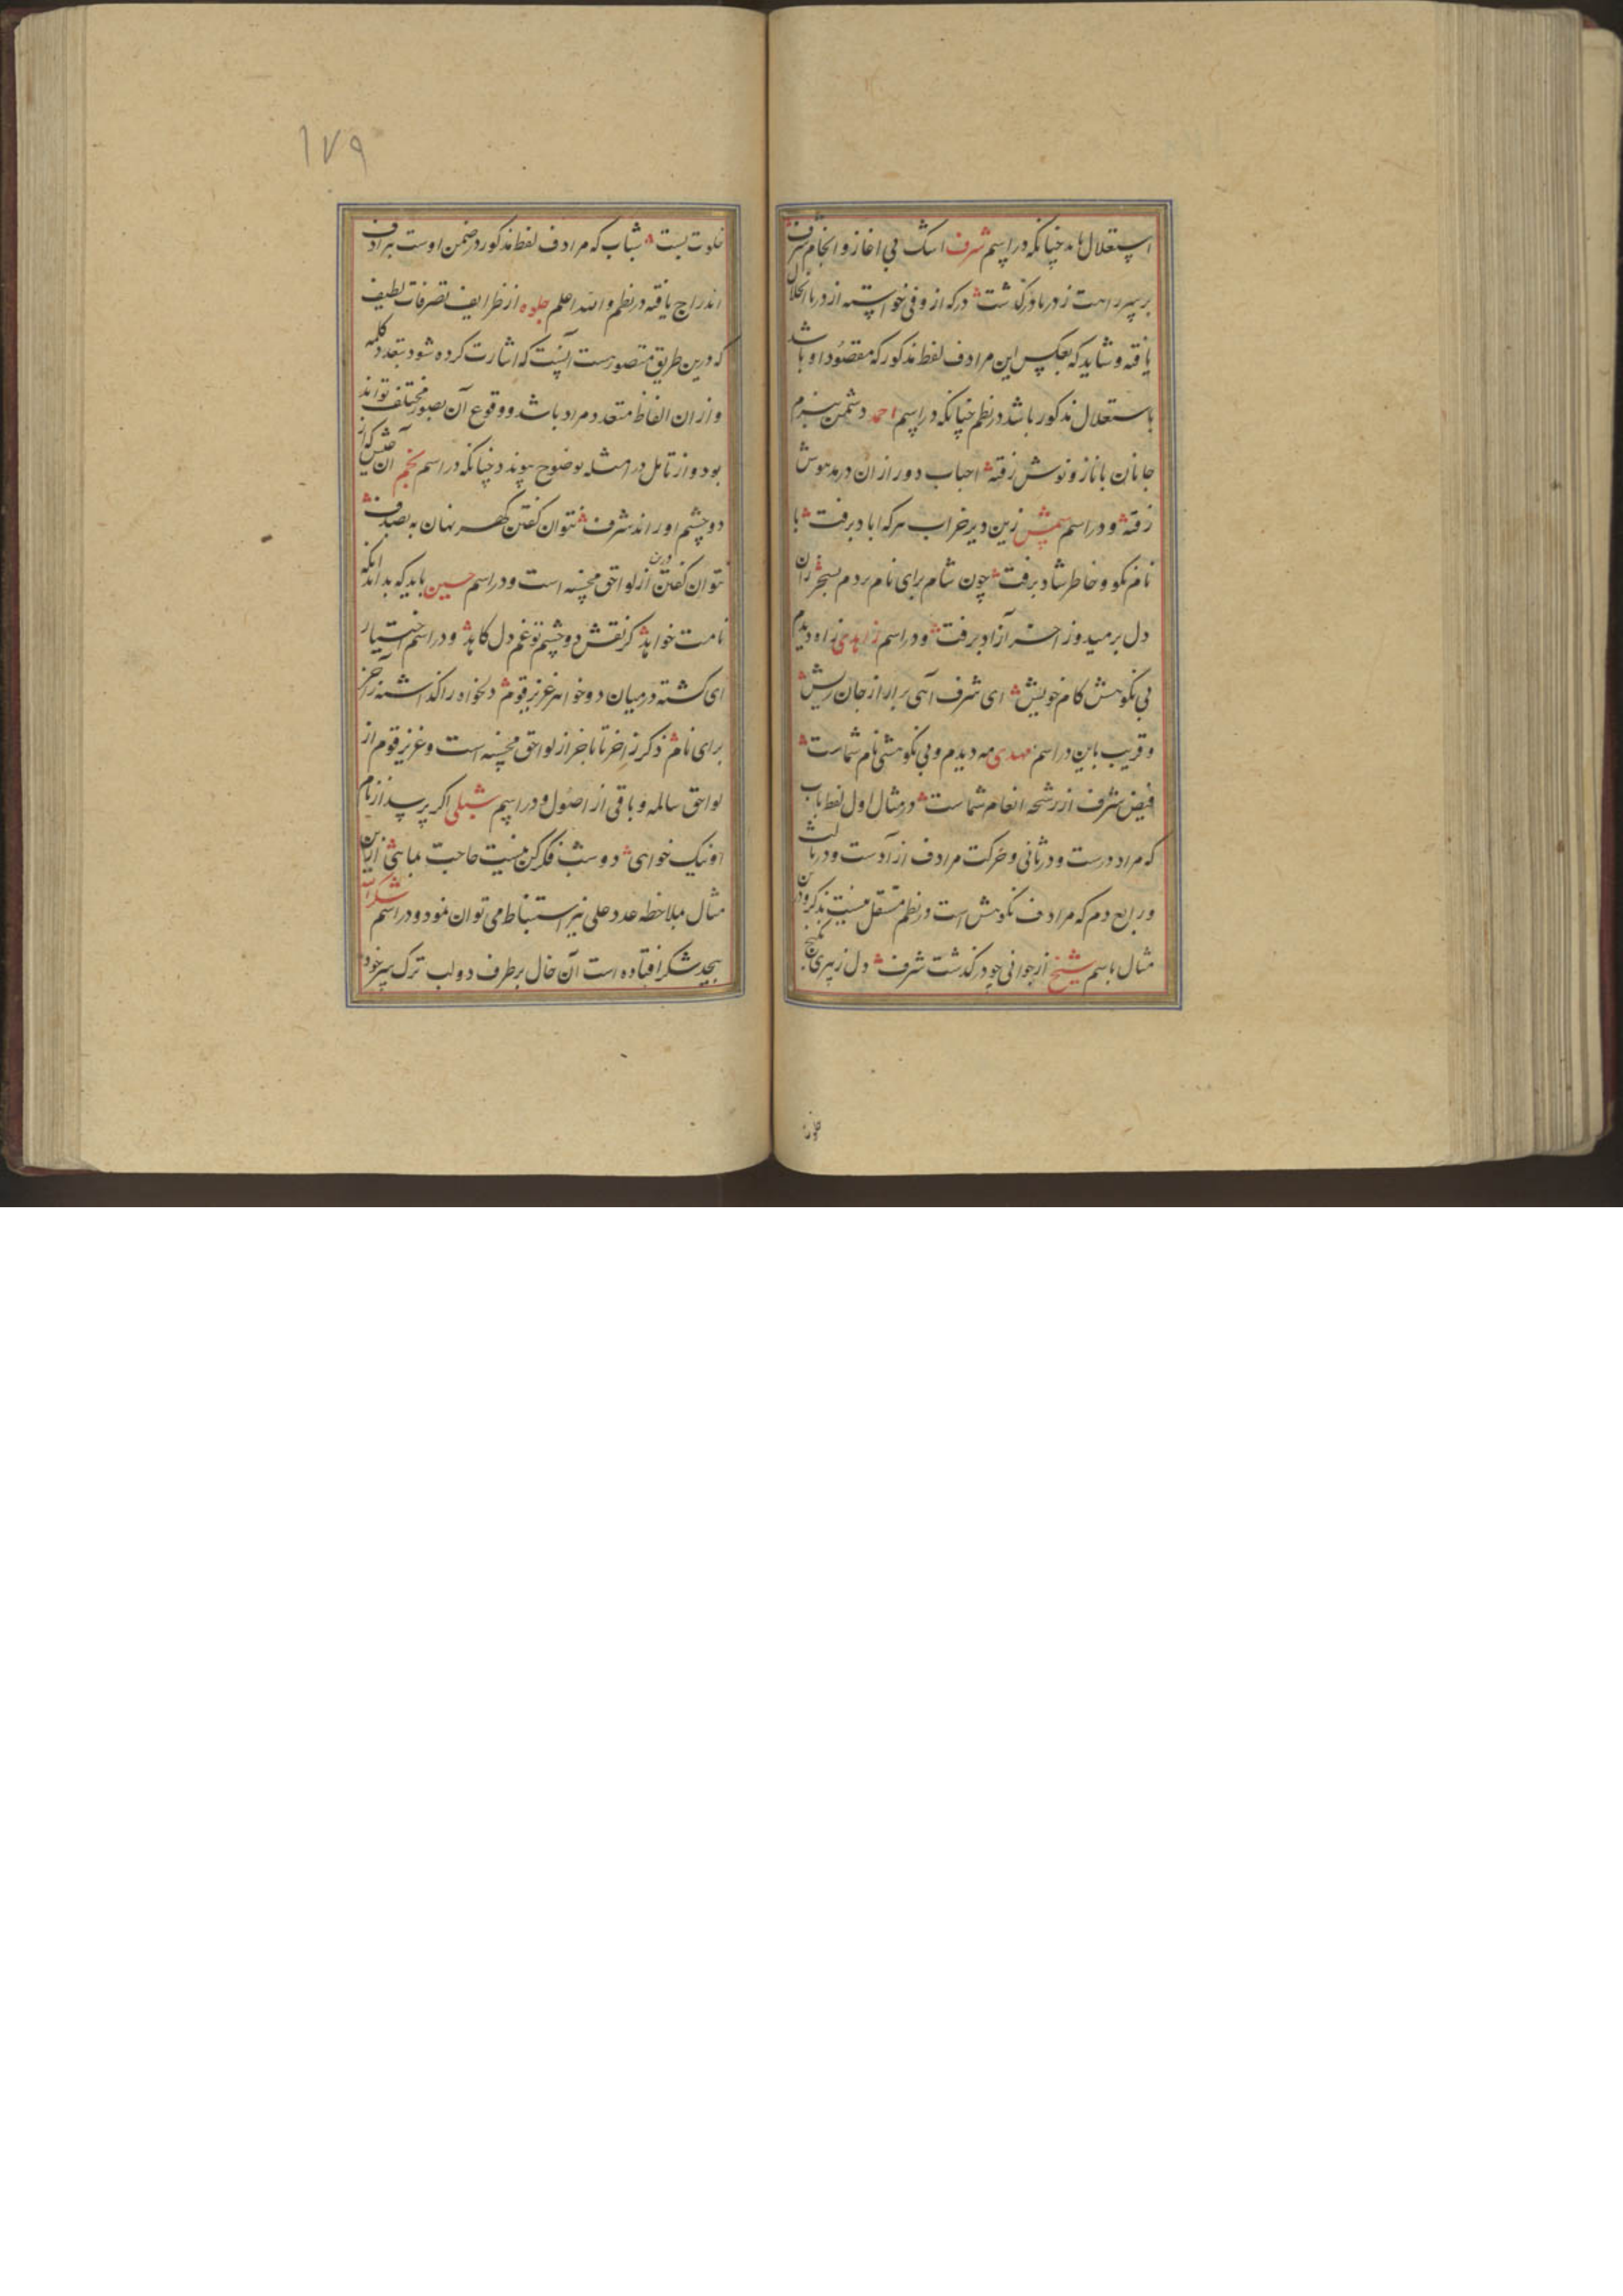 استعلال نامد چنانکه در اسم شرف اشک بی اغاز و انجام شرف
بر سر راهت ز دریا درکذشت درکه از وفی خواسته از دریا انحلال
یافته و شاید که بعکس این مرادف لفظ مذکور که مقصود او باشد
باستعلال مذکور باشد در نظم چنانکه در اسم احمد دشمن ببزم
جانان با ناز و نوش رفته احباب دور از ان در مدهوش
رفته و در اسم زین دیر خراب هرکه اباد برفت با
نام نکو و خاطر شاد برفت چون شام برای نام مردم بسحر زان
دل برمید وز اختر آزاد برفت و در اسم زاهدی زاه دیدم
بی نکوهش کام خویش ای شرف آهی برار از جان ریش
و قریب باین در اسم مهدی مه دیدم و بی نکوهشی نام شماست
فیض شرف از رشحه انعام شماست در مثال اول لفظ باب
که مراد درست و در ثانی و حرکت مرادف از آدست و در ثالث
و رابع دم که مرادف نکوهش است در نظم مستقل نیست بذکر و درین
مثال باسم شیخ از جوانی چو درکذشت شرف دل ز پیری بکنج
خلوت بست شباب که مرادف لفظ مذکور در ضمن اوست بمرادف
اندراج یافته در نظم والله اعلم جلوه از ظرایف تصرفات لطیف
که درین طریق متصورست آنست که اشارت کرده شود بتعدد کلمه
و از ان الفاظ متعدد مراد باشد و وقوع آن بصور مختلف تواند
بود و از تامل در امثله بوضوح پیوندد چنانکه در اسم نجم آن عیش که از
دو چشم او راند شرف نتوان کفتن کهر نهان به بصدف
نتوان کفتن درین از لواحق محسنه است و در اسم حسین باید که بداند انکه
نامت خواهد کز نقش دو چشم تو غم دل کاهد و در اسم اختیار
ای کشته در میان دو خواهر عزیز قوم دلخواه را کذاشته ز آخر
برای نام ذکر ز اخر تا باخر از لواحق محسنه است و عزیز قوم از
لواحق سالمه و باقی از اصول و در اسم شبلی اکر پرسد از نام
او نیک خواهی دو شب فکر کن نیست حاجت بماهی ازین
مثال بملاحظه عدد علی نیز استنباط می توان نمود و در اسم
بیحد شکر افتاده است آن خال بر طرف دو لب ترک سر خود
۱۷۹